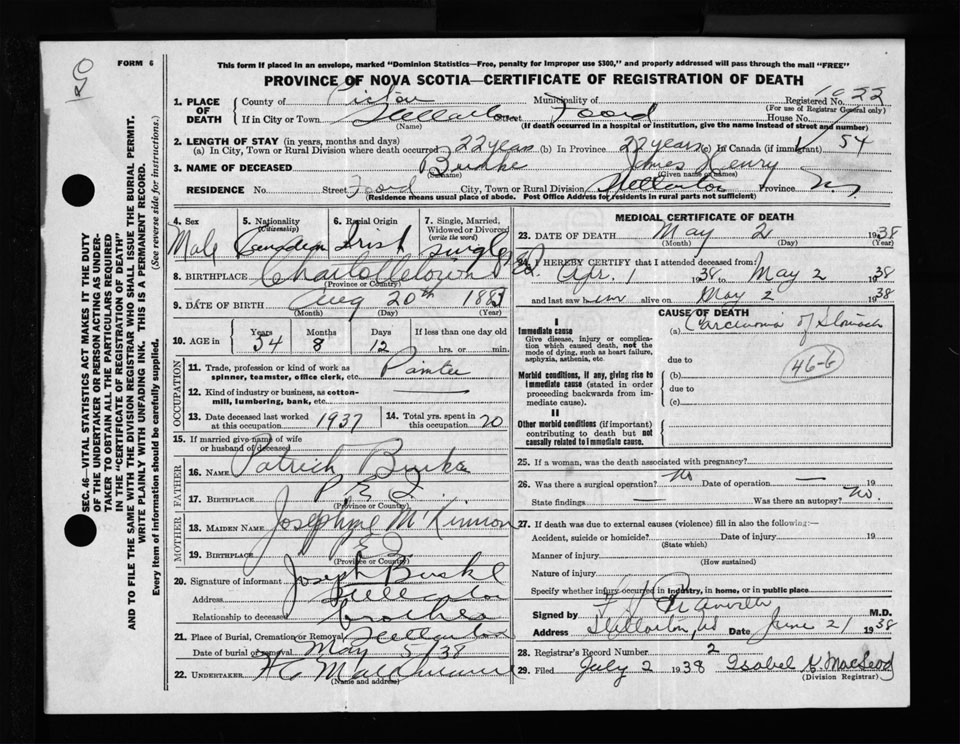 FORM 6
This form if placed in an envelope, marked "Dominion Statistics—Free, penalty for improper use $300," and properly addressed will pass through the mail "FREE"
PROVINCE OF NOVA SCOTIA—CERTIFICATE OF REGISTRATION OF DEATH
SEC. 46—VITAL STATISTICS ACT MAKES IT THE DUTY
OF THE UNDERTAKER OR PERSON ACTING AS UNDER-
TAKER TO OBTAIN ALL THE PARTICULARS REQUIRED
IN THE "CERTIFICATE OF REGISTRATION OF DEATH"
AND TO FILE THE SAME WITH THE DIVISION REGISTRAR WHO SHALL ISSUE THE BURIAL PERMIT.
WRITE PLAINLY WITH UNFADING INK. THIS IS A PERMANENT RECORD.
Every item of Information should be carefully supplied. (See reverse side for instructions.)
1. PLACE OF DEATH
County of Pictou Municipality of Registered No. 1022
(For use of Registrar General only)
If in City or Town Stellarton Street Foord House No.
(Name) (If death occurred in a hospital or institution, give the name instead of street and number)
2. LENGTH OF STAY (in years, months and days)
(a) In City, Town or Rural Division where death occurred 22 years (b) In Province 22 years (c) In Canada (if immigrant) 54
3. NAME OF DECEASED Burke James Henry
(Surname) (Given name or names)
RESIDENCE No. Street Foord City, Town or Rural Division Stellarton Province
(Residence means usual place of abode. Post Office Address for residents in rural parts not sufficient)
4. Sex Male
5. Nationality (Citizenship) Canadian
6. Racial Origin Irish
7. Single, Married, Widowed or Divorced (write the word) Single
8. BIRTHPLACE Charlottetown P.E.I.
(Province or Country)
9. DATE OF BIRTH Aug 20th 1883
(Month) (Day) (Year)
10. AGE in Years 54 Months 8 Days 12 If less than one day old hrs. or min.
OCCUPATION
11. Trade, profession or kind of work as spinner, teamster, office clerk, etc. Painter
12. Kind of industry or business, as cotton-mill, lumbering, bank, etc. —
13. Date deceased last worked at this occupation 1937
14. Total yrs. spent in this occupation 20
15. If married give name of wife or husband of deceased
FATHER
16. NAME Patrick Burke
17. BIRTHPLACE P.E.I.
(Province or Country)
MOTHER
18. MAIDEN NAME Josephine McKinnon
19. BIRTHPLACE
(Province or Country)
20. Signature of informant Joseph Burke
Address Stellarton
Relationship to deceased brother
21. Place of Burial, Cremation or Removal Stellarton
Date of burial or removal May 5/38
22. UNDERTAKER
(Name and address)
MEDICAL CERTIFICATE OF DEATH
23. DATE OF DEATH May 2 1938
(Month) (Day) (Year)
24. I HEREBY CERTIFY that I attended deceased from:
Apr. 1 1938 to May 2 1938
and last saw him alive on May 2 1938
CAUSE OF DEATH
I
Immediate cause
Give disease, injury or complication which caused death, not the mode of dying, such as heart failure, asphyxia, asthenia, etc.
(a) Carcinoma of Stomach
due to
Morbid conditions, if any, giving rise to immediate cause (stated in order proceeding backwards from immediate cause).
(b)
due to
(c)
46-6
II
Other morbid conditions (if important) contributing to death but not causally related to immediate cause.
25. If a woman, was the death associated with pregnancy?
26. Was there a surgical operation? no Date of operation — 19
State findings — Was there an autopsy? No.
27. If death was due to external causes (violence) fill in also the following:—
Accident, suicide or homicide? Date of injury 19
(State which)
Manner of injury
(How sustained)
Nature of injury
Specify whether injury occurred in Industry, in home, or in public place
Signed by M.D.
Address Stellarton, NS Date June 21 1938
28. Registrar's Record Number 2
29. Filed July 2 1938 Isabel G. MacLeod
(Division Registrar)